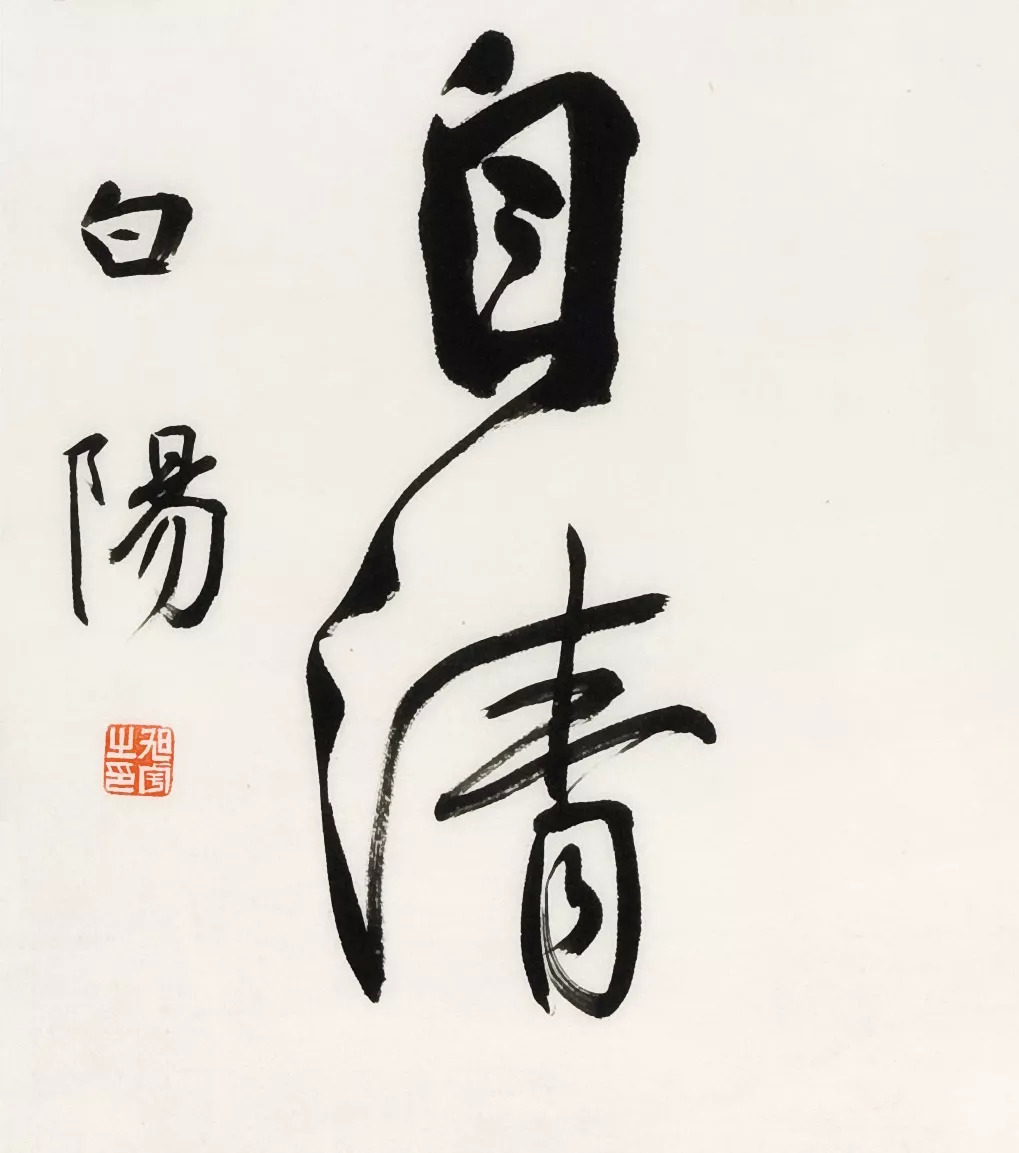 自清
白陽